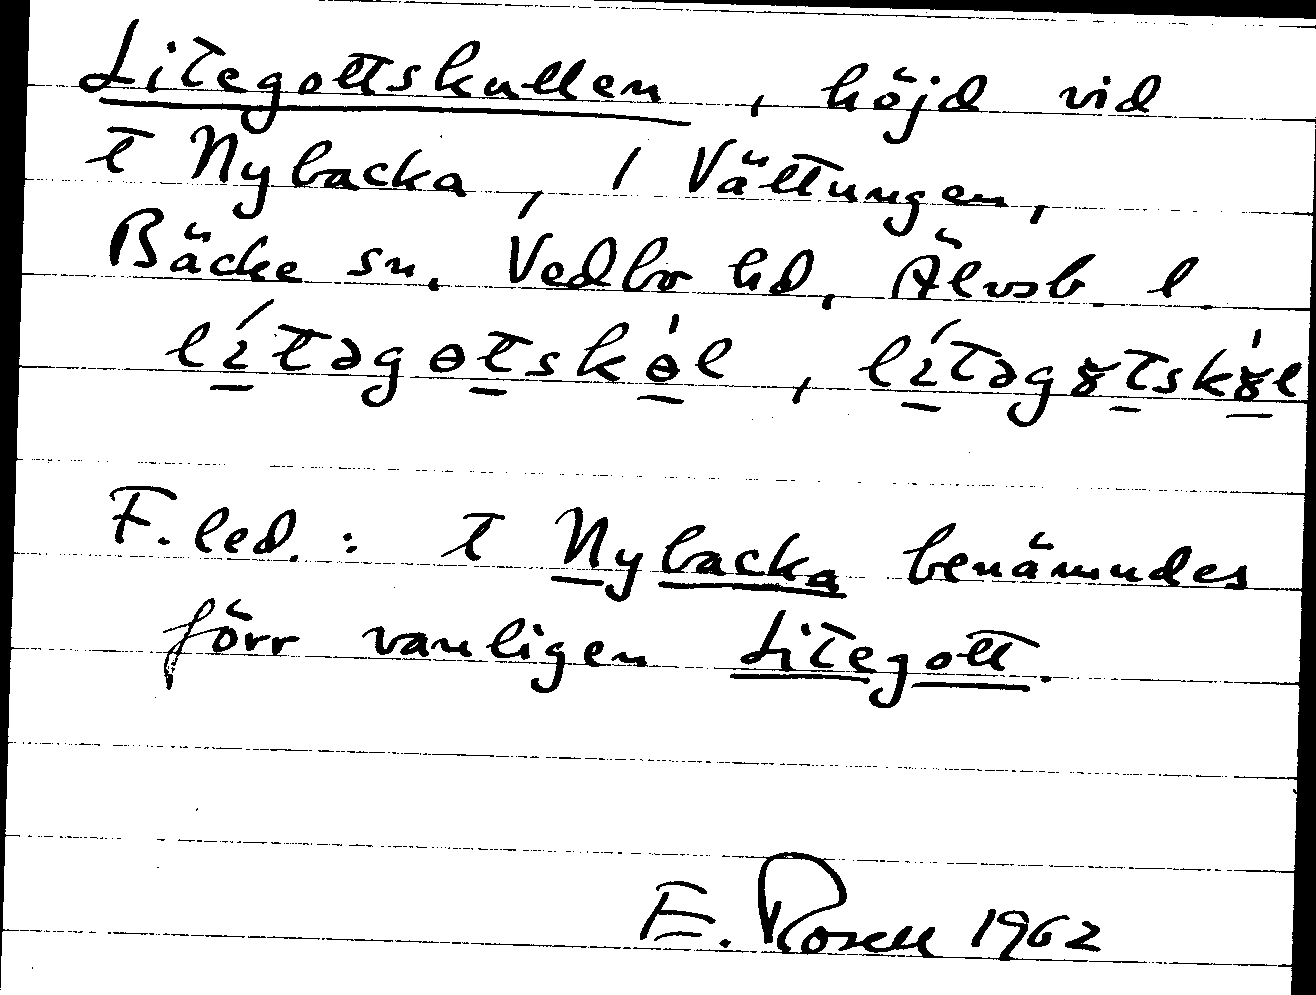 Litegottskullen, höjd vid
t Nybacka, / Vättungen,
Bäcke sn. Vedbo hd, Älvsb. l.
lítəgɵtskɵ̀l, lítəg
F.led. : t Nybacka benämndes
förr vanligen Litegott.
E. Rosell 1962